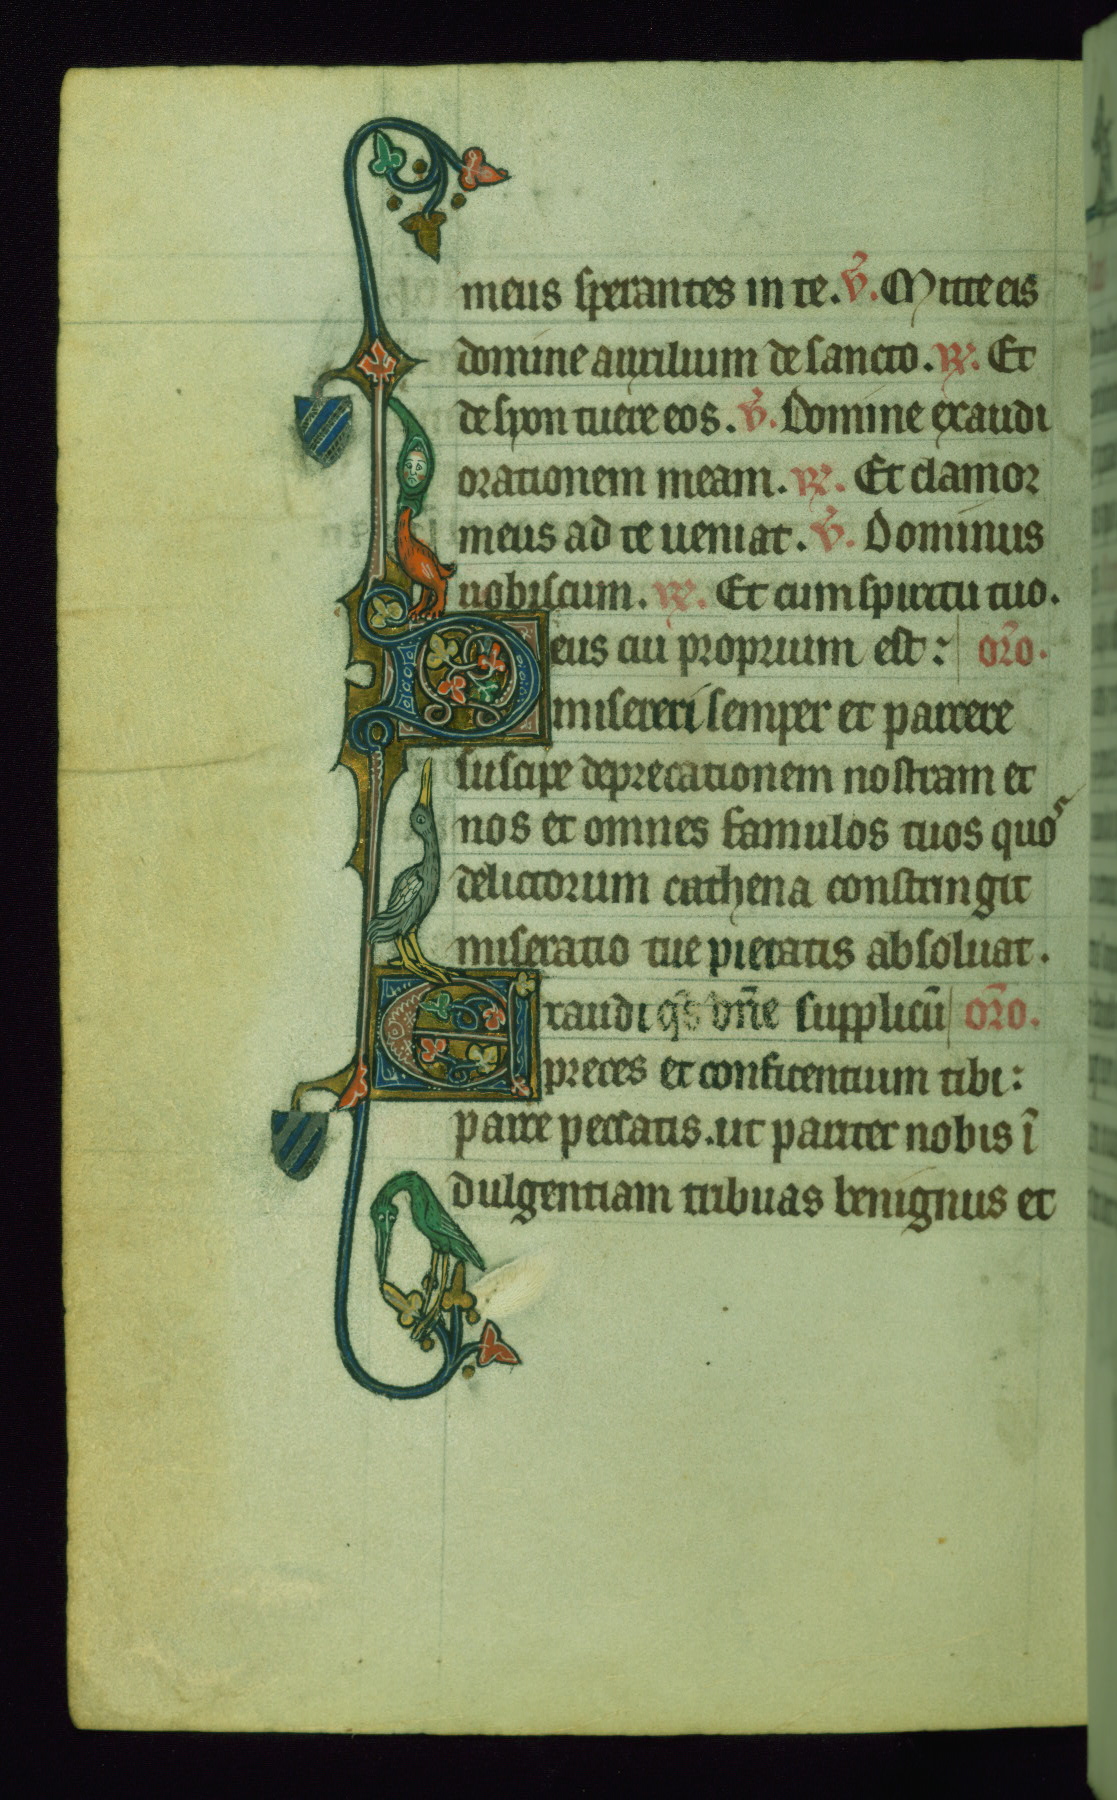 meus sperantes in te. V̄. Mitte eis
domine auxilium de sancto. R̄. Et
de syon tuere eos. V̄. Domine exaudi
orationem meam. R̄. Et clamor
meus ad te ueniat. V̄. Dominus
uobiscum. R̄. Et cum spiritu tuo.
Deus cui proprium est: or̄o.
misereri semper et parcere
suscipe deprecationem nostram et
nos et omnes famulos tuos quos
delictorum cathena constringit
miseratio tue pietatis absoluat.
Exaudi qs̄ dn̄e supplicū or̄o.
preces et confitentium tibi:
parce peccatis. ut pariter nobis ī
dulgentiam tribuas benignus et